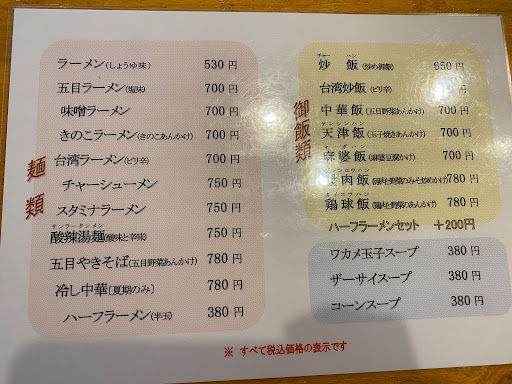 麺類
ラーメン(しょうゆ味) 530 円
五目ラーメン(塩味) 700 円
味噌ラーメン 700 円
きのこラーメン(きのこあんかけ) 700 円
台湾ラーメン(ピリ辛) 700 円
チャーシューメン 750 円
スタミナラーメン 750 円
サンラータンメン
酸辣湯麺(酸味と辛味) 750 円
五目やきそば(五目野菜あんかけ) 780 円
冷し中華[夏期のみ] 780 円
ハーフラーメン(半玉) 380 円
御飯類
チャー ハン
炒 飯 650 円
台湾炒飯(ピリ辛) 円
中華飯(五目野菜あんかけ) 700 円
テンシンハン
天津飯(玉子焼きあんかけ) 700 円
マーボハン
麻婆飯(麻婆豆腐かけ) 700 円
肉飯 780 円
鶏球飯 780 円
ハーフラーメンセット +200円
ワカメ玉子スープ 380 円
ザーサイスープ 380 円
コーンスープ 380 円
※ すべて税込価格の表示です